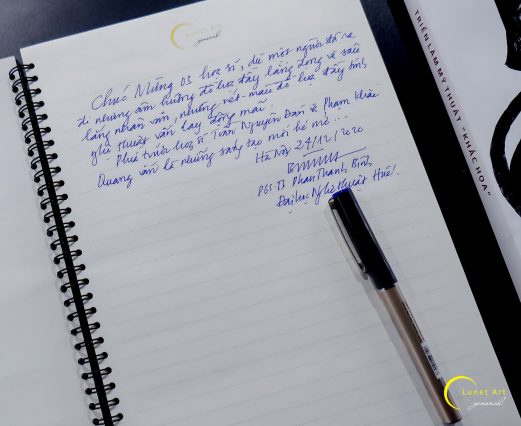 Lunet Art
general
Chúc Mừng 03 họa sĩ, dù một người đã ra
đi nhưng âm hưởng đồ họa đầy lắng đọng và sâu
lắng nhân văn, những nét màu đồ họa đầy tính
nghệ thuật vẫn lay động mãi.
Phía trước họa sĩ Trần Nguyên Đán & Phạm Khắc
Quang vẫn là những sáng tạo mới hé mở...
Hà Nội 24/12/2020
PGS.TS Phan Thanh Bình
Đại học Nghệ thuật Huế
TRIỂN LÃM MỸ THUẬT "KHẮC HỌA"
Lunet Art
general